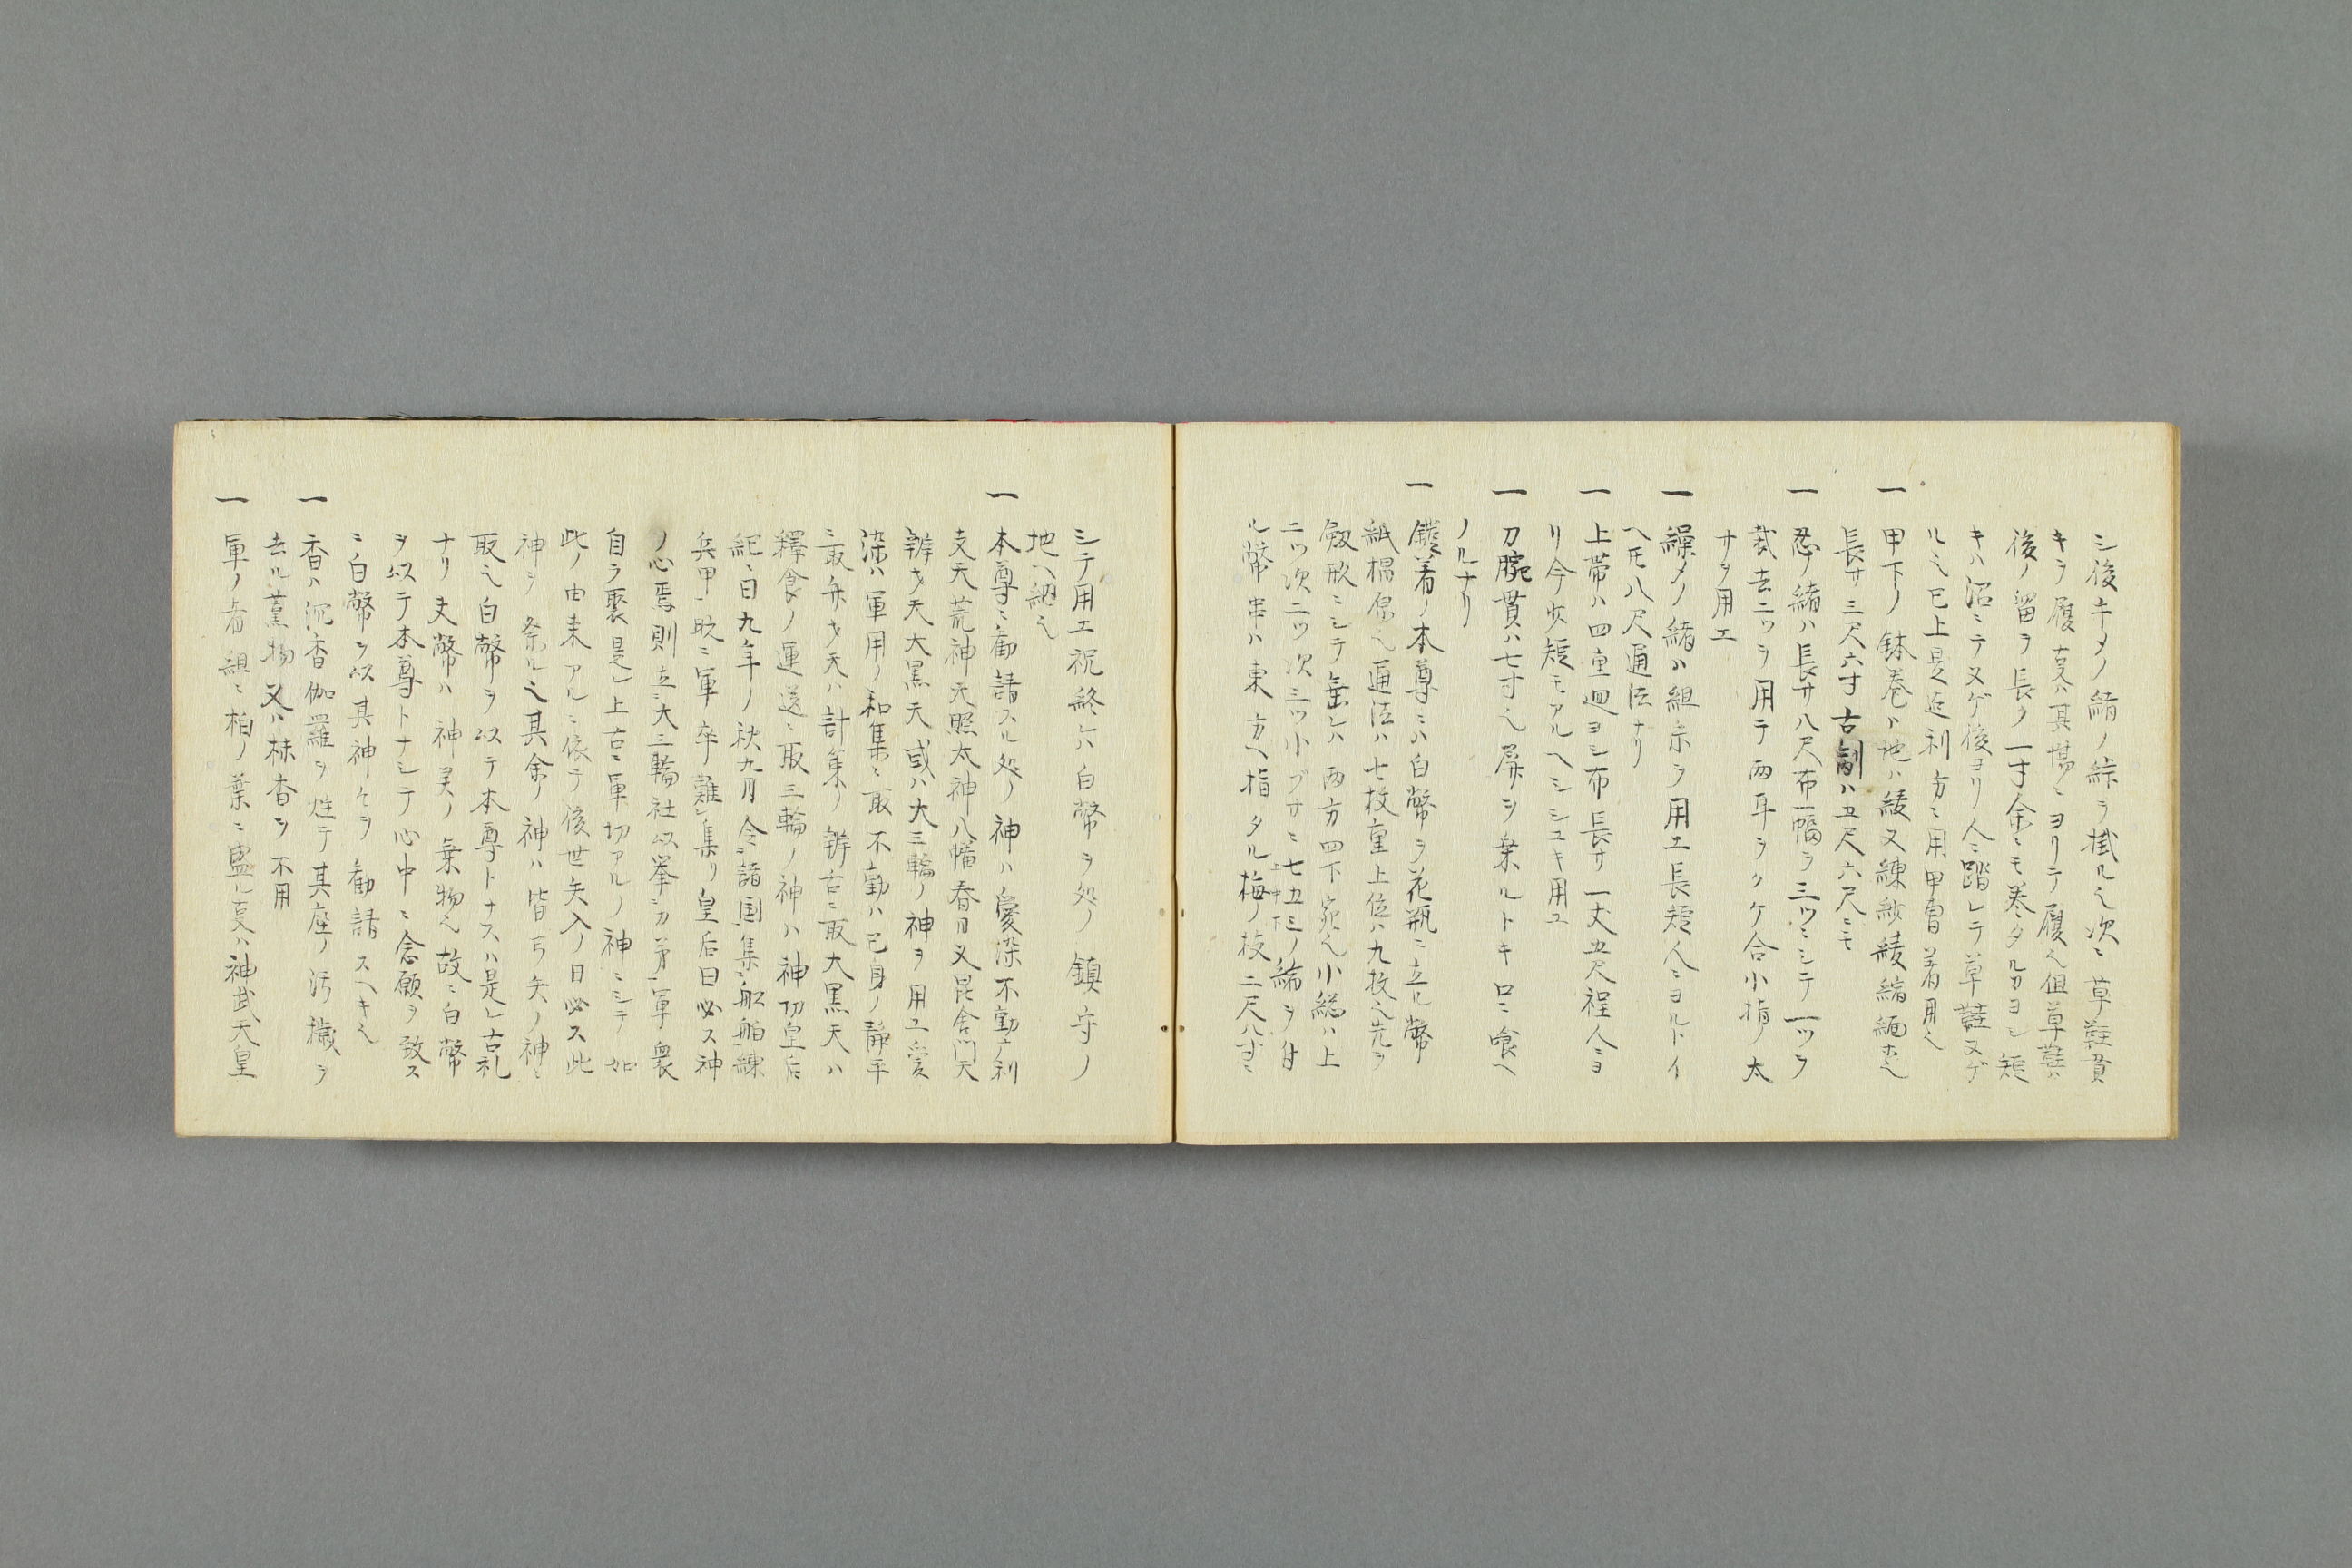 シ後キメノ緒ノ綜ヲ掛ル也次ニ草鞋貫
キヲ履支ハ其場ニヨリテ履也但草鞋ハ
後ノ留ヲ長ク一寸余ニモ巻タルカヨシ短
キハ沼ミテヌゲ後ヨリ人ニ踏レテ草鞋ヌゲ
ル也已上是迠利方ニ用甲冑着用也
一 甲下ノ鉢巻下地ハ綾又練紗綾縮緬ホ也
長サ三尺六寸古制ハ五尺六尺ニモ
一 忍ノ緒ハ長サ八尺布一幅ヲ三ツニシテ一ツヲ
裁去ニツヲ用テ両耳ヲクケ合小指ノ太
サヲ用エ
一 繰〆ノ緒ハ組糸ヲ用エ長短人ニヨルトイ
ヘ𪜈八尺通法ナリ
一 上帯ハ四重廻ヨシ布長サ一丈五尺程人ニヨ
リ今少短モアルヘシシユキ用ユ
一 刀腕貫ハ七寸也屏ヲ乗ルトキ口ニ喰ヘ
ノルナリ
一 鎧着ノ本尊ニハ白幣ヲ花瓶ニ立ル幣
紙椙原也通法ハ七枚重上位ハ九枚也先ヲ
劔形ニシテ垂レハ両方四下宛也小総ハ上
二ツ次二ツ次三ツ小ブサニ七五三ノ緒ヲ付
上中下
ル幣串ハ東方ヘ指タル梅ノ枝二尺八寸ニ
シテ用エ祝終レハ白幣ヲ処ノ鎮守ノ
地ヘ納也
一 本尊ニ勧請スル処ノ神ハ愛染不動广利
支天荒神天照太神八幡春日又昆舎門天
辨才天大黒天或ハ大三輪ノ神ヲ用エ愛
染ハ軍用ノ和集ニ取不動ハ已身ノ静平
ニ取弁才天ハ計策ノ辨舌ニ取大黒天ハ
釋食ノ運送ニ取三輪ノ神ハ神功皇后
紀ニ曰九年ノ秋九月令諸国集舩舶練
兵甲ニ時ニ軍卒難集リ皇后曰必ス神
ノ心焉則立大三輪社以奉刀矛軍衆
自ラ聚是レ上古ニ軍切アルノ神ニシテ如
此ノ由来アルニ依テ後世矢入ノ日必ス此
神ヲ祭ル也其余ノ神ハ皆弓矢ノ神ニ
取也白幣ヲ以テ本尊トナスハ是レ古礼
ナリ夫幣ハ神灵ノ乗物也故ニ白幣
ヲ以テ本尊トナシテ心中ニ念願ヲ致ス
ニ白幣ヲ以其神々ヲ勧請スヘキ也
一 香ハ沉香伽羅ヲ炷テ其座ノ汚穢ヲ
去ル薫物又ハ抹香ヲ不用
一 軍ノ者組ニ柏ノ葉ニ盛ル支ハ神武天皇